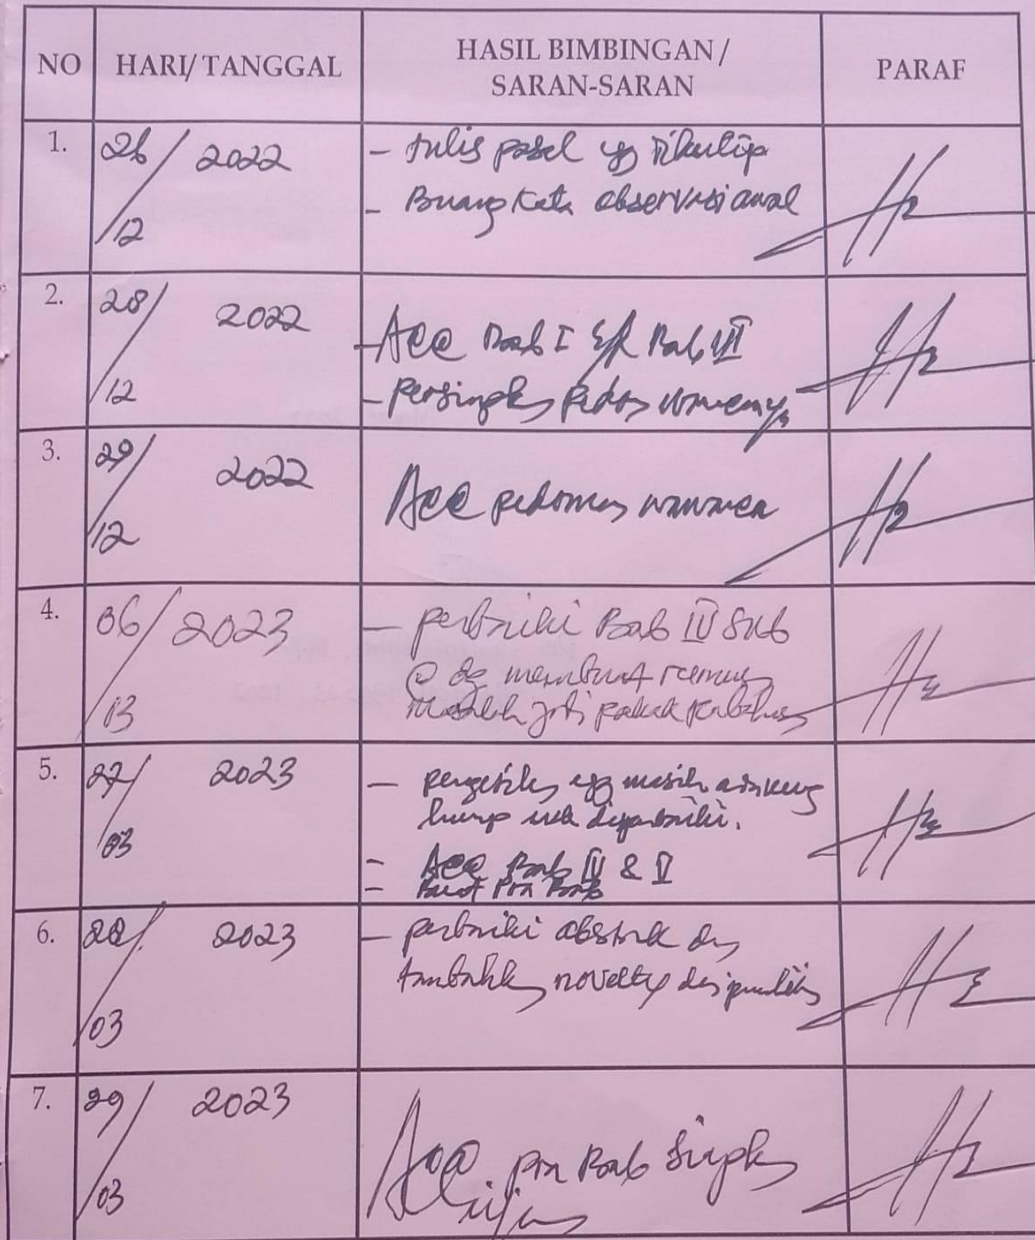 NO HARI/TANGGAL HASIL BIMBINGAN/ PARAF
SARAN-SARAN
1. 26/12 2022 - tulis pasal yg dikutip
- Buang kata observasi awal
2. 28/12 2022
- Acc Bab I s/d Bab III
- Persingkat
3. 29/12 2022 Acc pedoman wawanca
4. 06/03 2023 - perbaiki Bab IV sub
dg membuat rumusan
masalah jadi pokok
5. 27/03 2023 - pengetikan yg masih
diperbaiki.
- Acc Bab IV & V
- Buat Pra Bab
6. 28/03 2023 - perbaiki abstrak dan
tambahkan novelty dari
7. 29/03 2023
Acc pra Bab siapkan
ujian